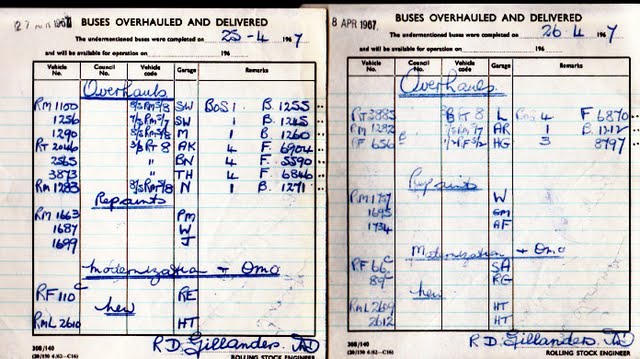 27 APR 1967
BUSES OVERHAULED AND DELIVERED
The undermentioned buses were completed on 25-4 1967
and will be available for operation on 196
Vehicle No. Council No. Vehicle code Garage Remarks
Overhauls
RM 1100 8/5 RM 5/8 SW BOS 1. B. 1255
1256 7/5 RM 5/7 SW 1 B. 1265
1290 8/5 RM 5/8 M 1 B. 1260
RT 2046 3/5 RT 8 AK 4 F. 6904
2565 " BN 4 F. 5590
3873 " TH 4 F. 6846
RM 1283 8/5 RM 5/8 N 1 B. 1271
Repaints
RM 1663 PM
1687 W
1699 J
Modernization + Omo
RF 110 C RE
New
RML 2610 HT
R.D. Gillanders.
308/140
(20/150 6/62-C16) ROLLING STOCK ENGINEER
8 APR 1967
BUSES OVERHAULED AND DELIVERED
The undermentioned buses were completed on 26-4 1967
and will be available for operation on 196
Vehicle No. Council No. Vehicle code Garage Remarks
Overhauls
RT 3885 RT 8 L BOS 4 F 6870
RM 1282 RM 7 AR 1 B. 1212
RF 656 HG 3 8797
Repaints
RM 1737 W
1695 GM
1734 AF
Modernization + Omo
RF 66 C SA
89 C RG
New
RML 2609 HT
2612 HT
R.D. Gillanders.
308/140
(20/150 6/62-C16) ROLLING STOCK ENGINEER